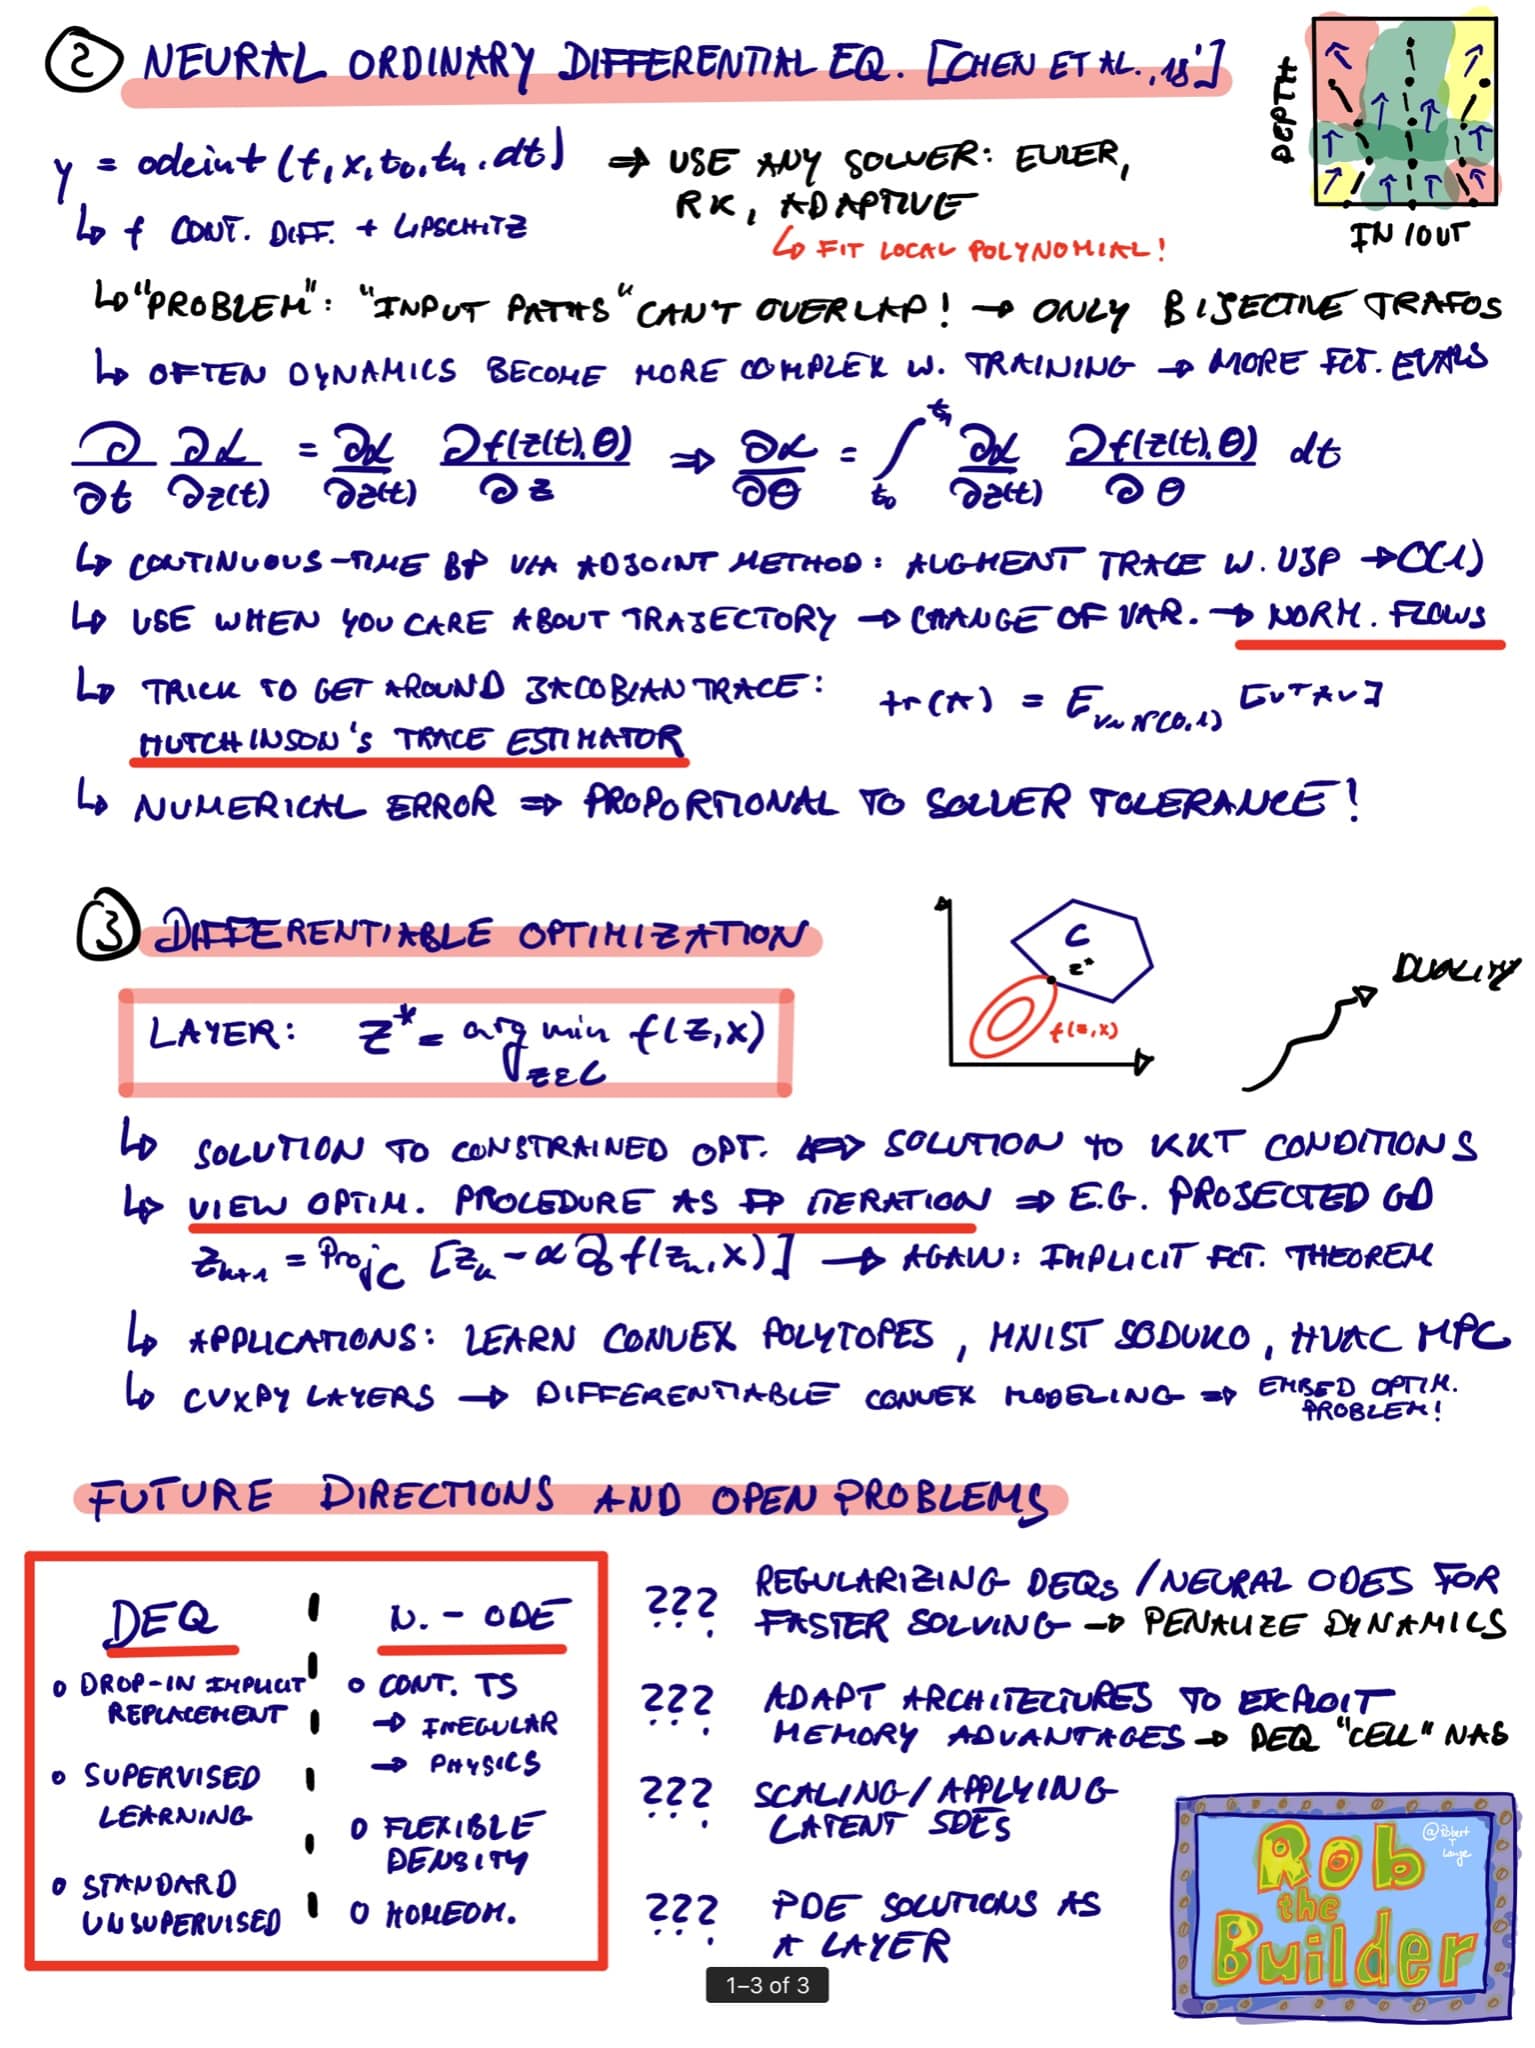 2 NEURAL ORDINARY DIFFERENTIAL EQ. [CHEN ET AL., 18']
DEPTH
IN/OUT
y = odeint(f, x, t₀, tₙ, dt) ⇒ USE ANY SOLVER: EULER,
RK, ADAPTIVE
↳ f CONT. DIFF. + LIPSCHITZ
↳ FIT LOCAL POLYNOMIAL!
↳ "PROBLEM": "INPUT PATHS" CAN'T OVERLAP! → ONLY BIJECTIVE TRAFOS
↳ OFTEN DYNAMICS BECOME MORE COMPLEX W. TRAINING → MORE FCT. EVALS
∂/∂t ∂L/∂z(t) = ∂L/∂z(t) ∂f(z(t),θ)/∂z ⇒ ∂L/∂θ = ∫_{t₀}^{tₙ} ∂L/∂z(t) ∂f(z(t),θ)/∂θ dt
↳ CONTINUOUS-TIME BP VIA ADJOINT METHOD: AUGMENT TRACE W. VJP → O(1)
↳ USE WHEN YOU CARE ABOUT TRAJECTORY → CHANGE OF VAR. → NORM. FLOWS
↳ TRICK TO GET AROUND JACOBIAN TRACE: tr(A) = E_{v~N(0,1)} [vᵀAv]
HUTCHINSON'S TRACE ESTIMATOR
↳ NUMERICAL ERROR ⇒ PROPORTIONAL TO SOLVER TOLERANCE!
3 DIFFERENTIABLE OPTIMIZATION
C
z*
f(z,x)
DUALITY
LAYER: z* = arg min_{z∈C} f(z,x)
↳ SOLUTION TO CONSTRAINED OPT. ⇔ SOLUTION TO KKT CONDITIONS
↳ VIEW OPTIM. PROCEDURE AS FP ITERATION ⇒ E.G. PROJECTED GD
z_{k+1} = Proj_C [z_k - α ∂ f(z_k, x)] → AGAIN: IMPLICIT FCT. THEOREM
↳ APPLICATIONS: LEARN CONVEX POLYTOPES, MNIST SODUKO, HVAC MPC
↳ CVXPY LAYERS → DIFFERENTIABLE CONVEX MODELING ⇒ EMBED OPTIM.
PROBLEM!
FUTURE DIRECTIONS AND OPEN PROBLEMS
DEQ
o DROP-IN IMPLICIT
REPLACEMENT
o SUPERVISED
LEARNING
o STANDARD
UNSUPERVISED
N. - ODE
o CONT. TS
→ IRREGULAR
→ PHYSICS
o FLEXIBLE
DENSITY
o HOMEOM.
??? REGULARIZING DEQs / NEURAL ODES FOR
FASTER SOLVING → PENALIZE DYNAMICS
??? ADAPT ARCHITECTURES TO EXPLOIT
MEMORY ADVANTAGES → DEQ "CELL" NAS
??? SCALING / APPLYING
LATENT SDEs
??? PDE SOLUTIONS AS
A LAYER
1–3 of 3
@Robert
T
Lange
Rob
the
Builder